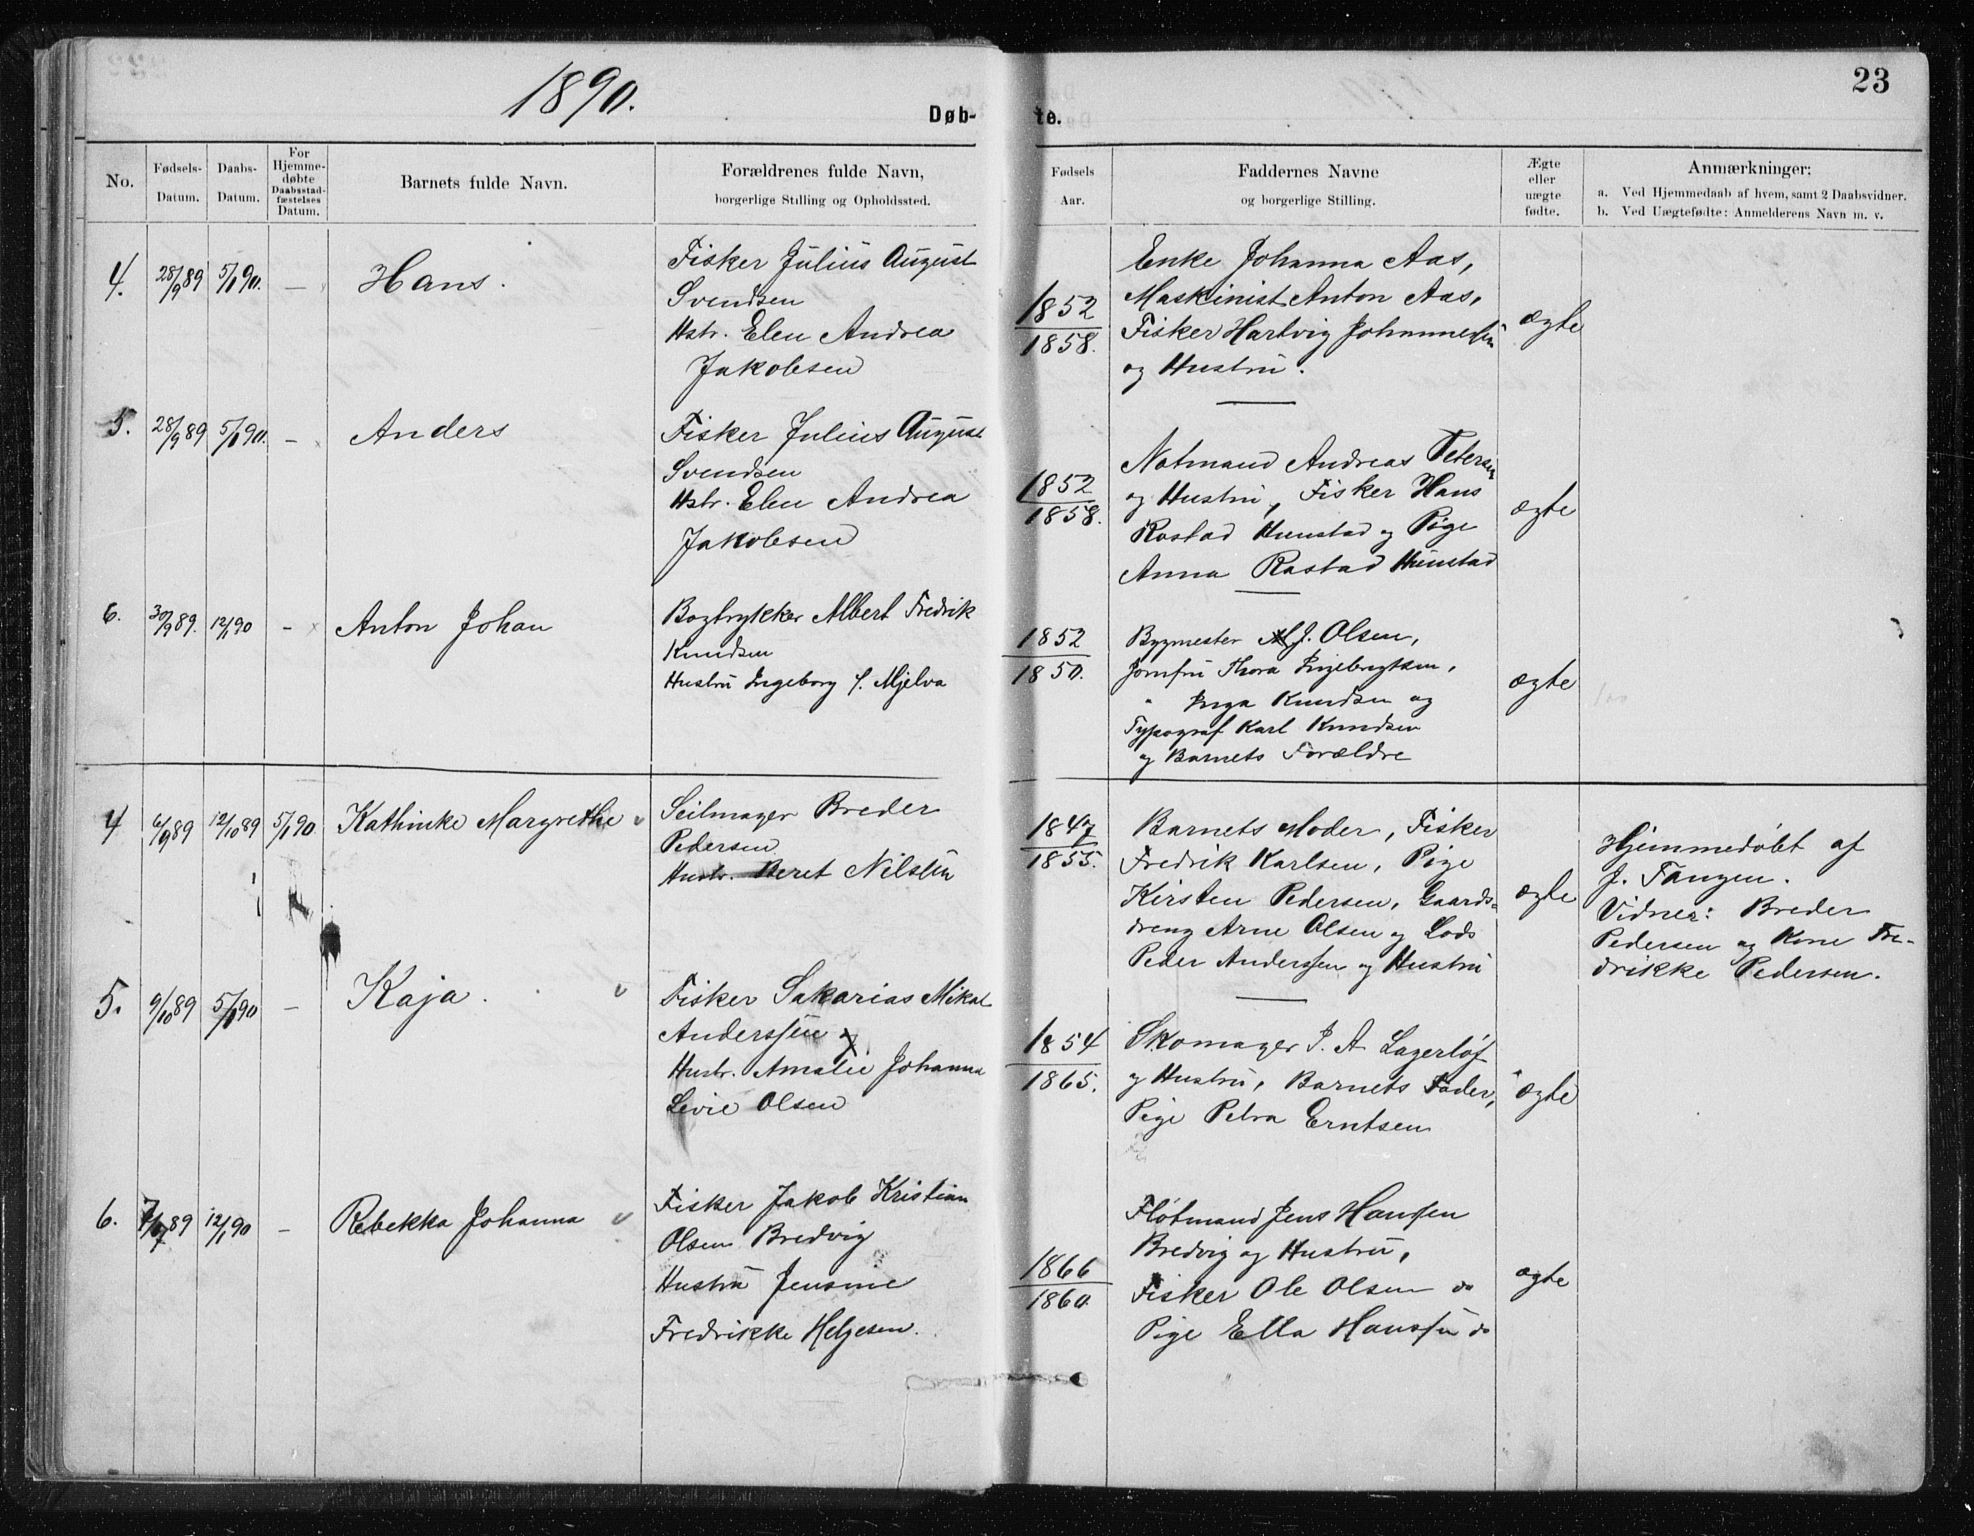 1890.
23
Døb-
te.
No.
Fødsels-
Datum.
Daabs-
Datum.
For
Hjemme-
døbte
Daabsstad-
fæstelses
Datum.
Barnets fulde Navn.
Forældrenes fulde Navn,
borgerlige Stilling og Opholdssted.
Fødsels
Aar.
Faddernes Navne
og borgerlige Stilling.
Ægte
eller
uægte
fødte.
Anmærkninger:
a. Ved Hjemmedaab af hvem, samt 2 Daabsvidner.
b. Ved Uægtefødte: Anmelderens Navn m. v.
4. 28/9 89 5/1 90. — Hans.
Fisker Julius August
Svendsen
Hstr. Elen Andrea
Jakobsen
1852
1858.
Enke Johanna Aas,
Maskinist Anton Aas,
Fisker Hartvig Johannessen
og Hustru.
ægte
5. 28/9 89 5/1 90. — Anders
Fisker Julius August
Svendsen
Hstr. Elen Andrea
Jakobsen
1852
1858.
Notmand Andreas Petersen
og Hustru, Fisker Hans
Rostad Hunstad og Pige
Anna Rostad Hunstad
ægte
6. 30/9 89. 12/1 90 - Anton Johan
Bogtrykker Albert Fredrik
Knudsen
Hustru Ingeborg f. Mjelva
1852
1850.
Bygmester J. Olsen,
Jomfru Thora Ingebrigtsen,
" Inga Knudsen og
Typograf Karl Knudsen
og Barnets Forældre
ægte
4 6/9 89 12/10 89 5/1 90 Kathinke Margrethe
Seilmager Breder
Pedersen
Hustr. Beret Nilsen
1847
1855.
Barnets Moder, Fisker
Fredrik Karlsen, Pige
Kirsten Pedersen, Gaards=
dreng Arne Olsen og Lods
Peder Anderssen og Hustru
ægte
Hjemmedøbt af
J. Tangen.
Vidner: Breder
Pedersen og Kone Fre-
drikke Pedersen.
5. 9/10 89 5/1 90 — Kaja.
Fisker Sakarias Mikal
Anderssen og
Hustr. Amalie Johanna
Levie Olsen
1854
1865.
Skomager J. A. Lagerløf
og Hustru, Barnets Fader,
Pige Petra Erntsen
ægte
6. 89 12/1 90 — Rebekka Johanna
Fisker Jakob Kristian
Olsen Bredvig
Hustru Jensine
Fredrikke Helgesen.
1866
1860.
Fløtmand Jens Hansen
Bredvig og Hustru,
Fisker Ole Olsen do
Pige Ella Hanssen do
ægte